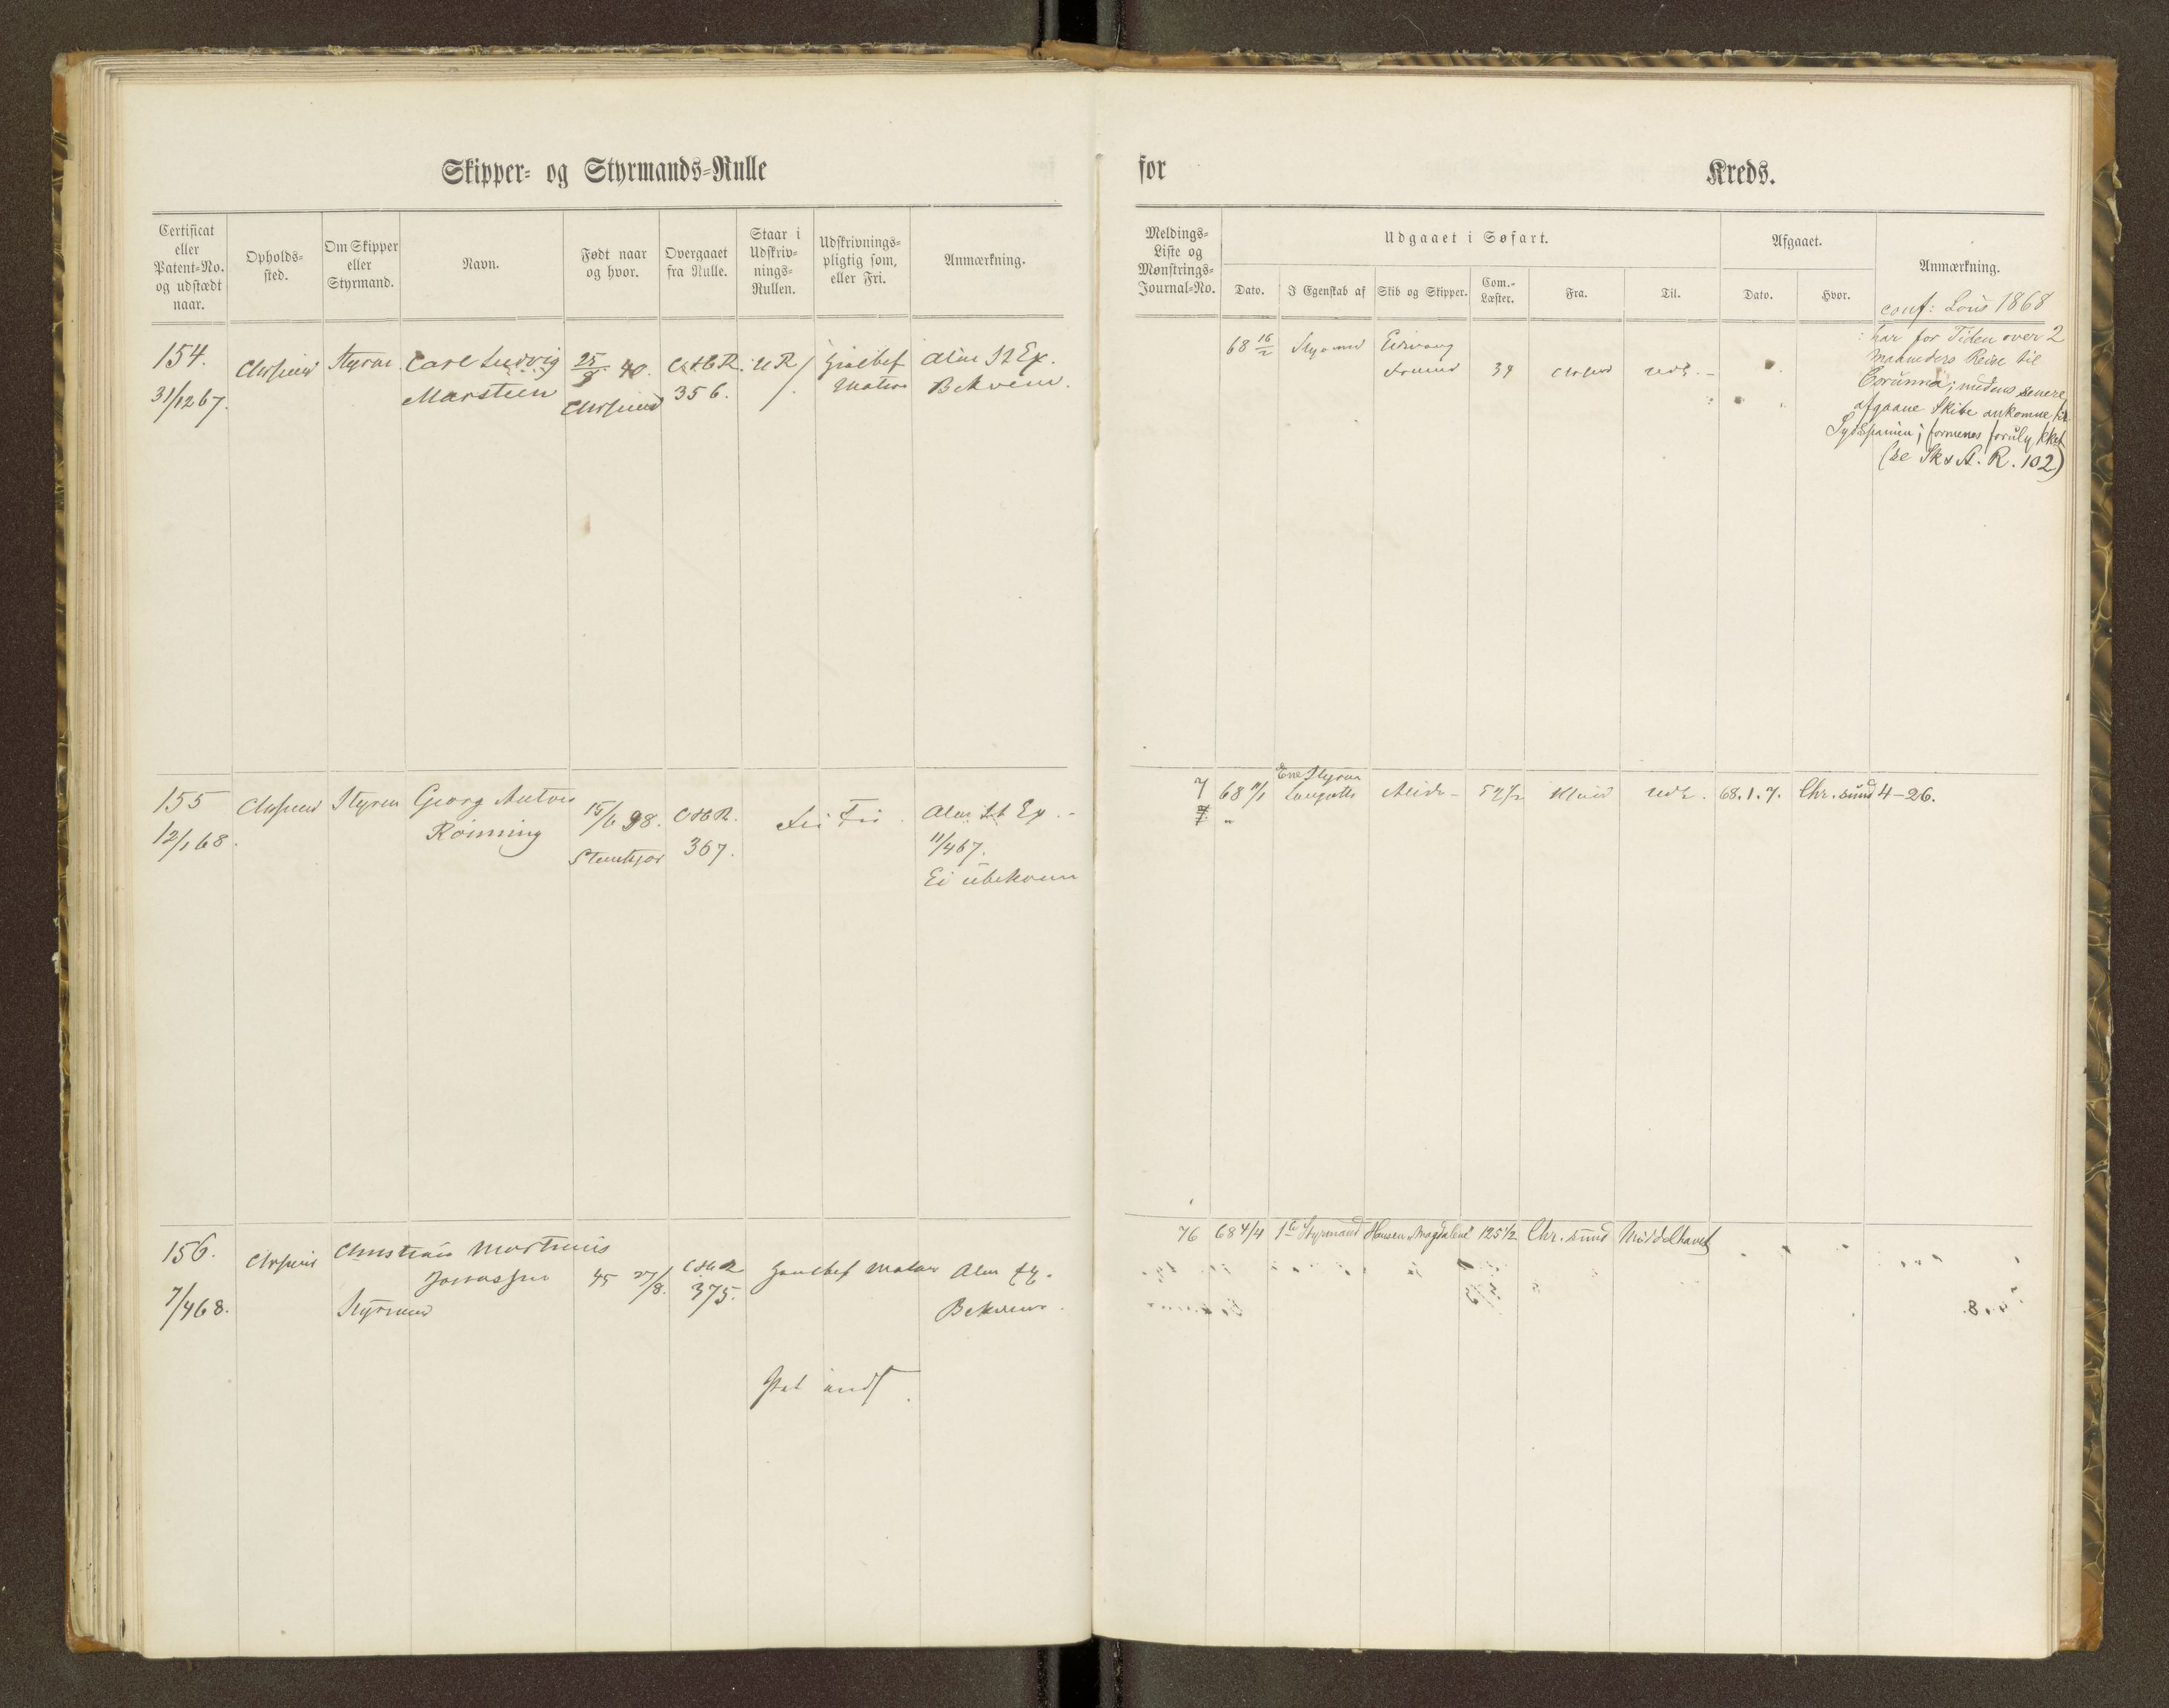 Skipper- og Styrmands-Rulle
Certificat eller Patent-No. og udstædt naar.
Opholds-sted.
Om Skipper eller Styrmand.
Navn.
Født naar og hvor.
Overgaaet fra Rulle.
Staar i Udskriv-nings-Rullen.
Udskrivnings-pligtig som, eller Fri.
Anmærkning.
154.
31/12 67.
Chrsund
Styrm.
Carl Ludvig
Marstein
25/8 40.
Chrsund
356.
U R
Alm St Ex.
Bekvem.
155
12/1 68.
Chrsund
Styrm
Georg Anton
Rönning
15/6 38.
Stenkjær
367.
Fri
Fri
Alm St Ex.
11/4 67.
Ei ubekvem
156.
7/4 68.
Chrsund
Christian Martinus
Jonassen
Styrmand
45 27/8.
375.
Matros
Alm Ex.
Bekvem.
for
Kreds.
Meldings-Liste og Mønstrings-Journal-No.
Udgaaet i Søfart.
Dato.
I Egenskab af
Skib og Skipper.
Com.-Læster.
Fra.
Til.
Afgaaet.
Dato.
Hvor.
Anmærkning.
conf: Lous 1868
68 16/2
Styrmd
39
Chrsund
Udl.
har for Tiden over 2
Maaneders Reise til
Corunna; medens senere
afgaane Skibe ankomne til
SydSpanien; formenes forulykket
(se Sk & S. R. 102)
7
68 7/1
Ene Styrm
57 1/2
Udl.
68.1.7.
Chr.sund
4-26.
76
68 4/4
1e Styrmand
Hansen, Magdalene
125 1/2
Chr.sund
Middelhavet